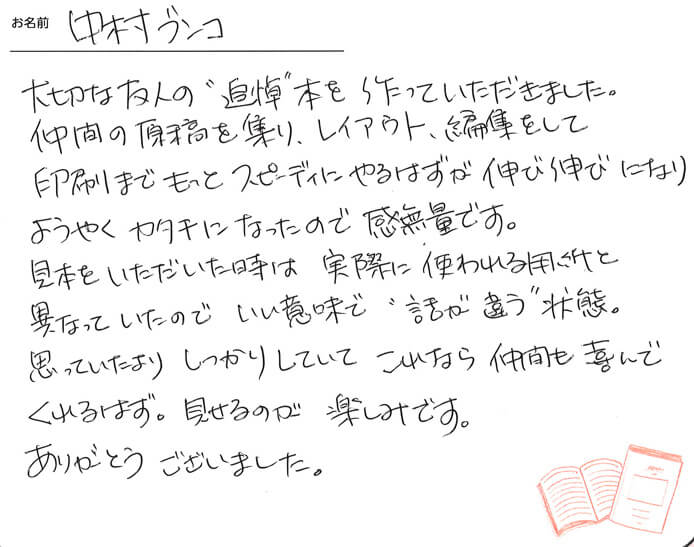 お名前 中村ゲンコ
大切な友人の"追悼"本を作っていただきました。
仲間の原稿を集り、レイアウト、編集をして
印刷までもっとスピーディにやるはずが伸び伸びになり
ようやくカタチになったので感無量です。
見本をいただいた時は実際に使われる用紙と
異なっていたのでいい意味で"話が違う"状態。
思っていたよりしっかりしていてこれなら仲間も喜んで
くれるはず。見せるのが楽しみです。
ありがとうございました。